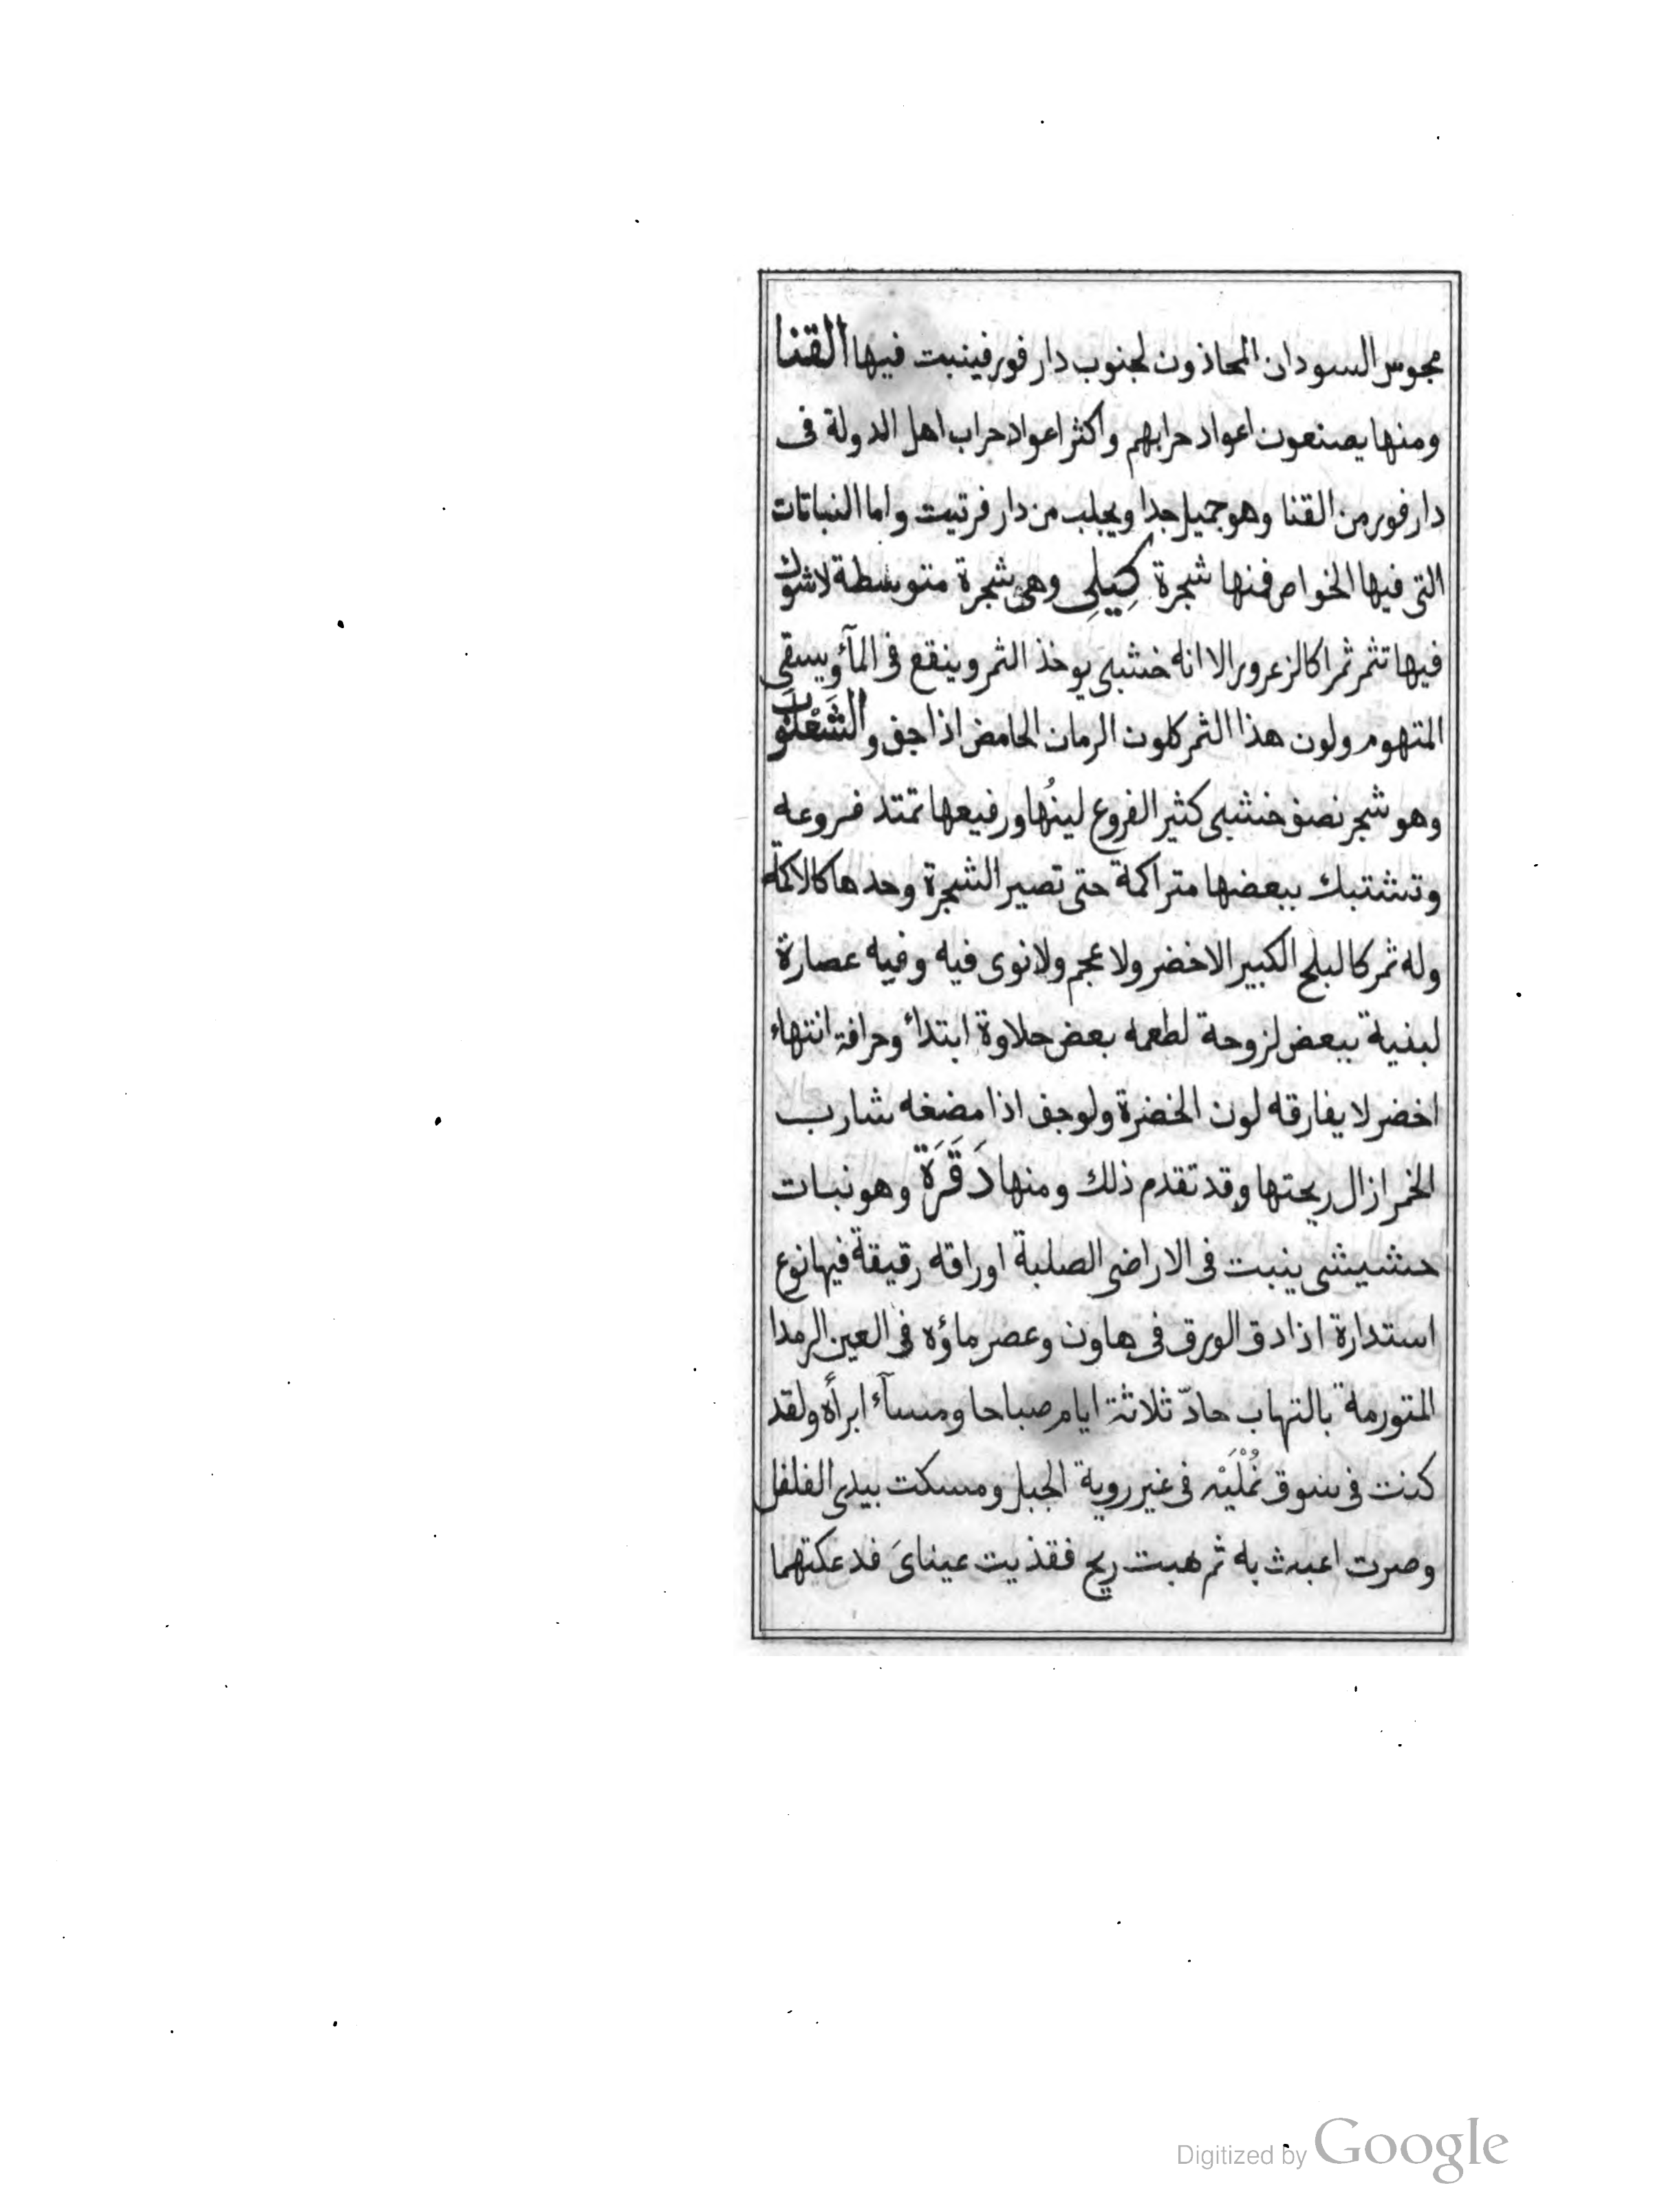 مجوس السودان المحاذون لجنوب دار فور فينبت فيها القنا
ومنها يصنعون اعواد حرابهم واكثر اعواد حراب اهل الدولة فى
دار فور من القنا وهو جميل جدا ويجلب من دار فرتيت واما النباتات
التى فيها الخواص فمنها شجرة كِيلِى وهى شجرة متوسطة لاشوك
فيها تثمر ثمرا كالزعرور الا انه خشبى يوخذ الثمر وينقع فى المآء ويسقى
المتهوم ولون هذا الثمر كلون الرمان الحامض اذا جف والشَعْلُوَب
وهو شجر نصف خشبى كثير الفروع لينُها ورفيعها تمتد فروعه
وتشتبك ببعضها متراكمة حتى تصير الشجرة وحدها كالاكمة
وله ثمر كالبلح الكبير الاخضر ولا عجم ولا نوى فيه وفيه عصارة
لبنية ببعض لزوحة لطعمه بعض حلاوة ابتداء وحرافة انتهاء
اخضر لا يفارقه لون الخضرة ولو جف اذا مضغه شارب
الخمر ازال ريحتها وقد تقدم ذلك ومنها دَقَرَة وهو نبات
حشيشى ينبت فى الاراضى الصلبة اوراقه رقيقة فيها نوع
استدارة اذا دق الورق فى هاون وعصر ماؤه فى العين الرمدا
المتورمة بالتهاب حادّ ثلاثة ايام صباحا ومسآء ابرأه ولقد
كنت فى سوق نُمْلَيْه فى غير روية الجبل ومسكت بيدى الفلفل
وصرت اعبث به ثم هبت ريح فقذيت عيناىَ فدعكتهما
Digitized by Google